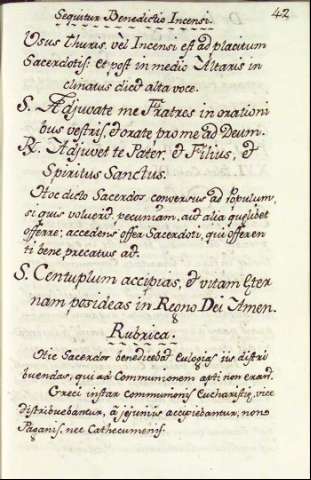 42
Sequitur Benedictio Incensi.
Usus thuris, vel Incensi est ad placitum
Sacerdotis: et post in medio Altaris in
clinatus dicit alta voce.
S. Adjuvate me Fratres in orationi
bus vestris, & orate pro me ad Deum.
℟. Adjuvet te Pater, & Filius, &
Spiritus Sanctus.
Hoc dicto Sacerdos conversus ad Populum,
si quis voluerit pecuniam, aut alia quęlibet
offerre; accedens offer Sacerdoti, qui offeren
ti bene precatus ait.
S. Centuplum accipias, & vitam Ęter
nam posideas in Regno Dei Amen.
Rubrica.
Hic Sacerdos benedicebat Eulogias iis distri
buendas, qui ad Communionem apti non erant.
Gręci instar communionis Eucharistię, vice
distribuebantur, à jejuniis accipiebantur, non
Paganis, nec Cathecumenis.